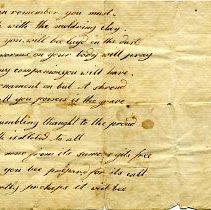 remember you must
with the moldring clay
you will bee laye in the dust
worms on your body will pray
my companion you will have
ornament on but a shroud
all you possess is the grave
humbling thought to the proud
is aloted to all
none from its
you bee prepare for its call
perhaps it will bee